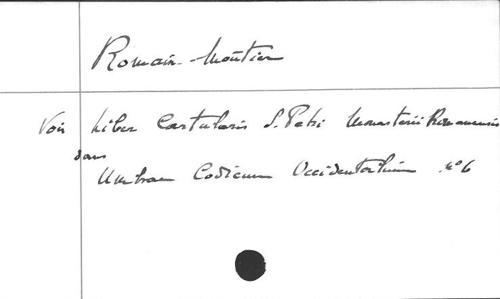 Romain-Moûtier
Voir Liber Cartularis S. Petri Monasterii Romanensis
dans
Umbrae Codicum Occidentalium n° 6